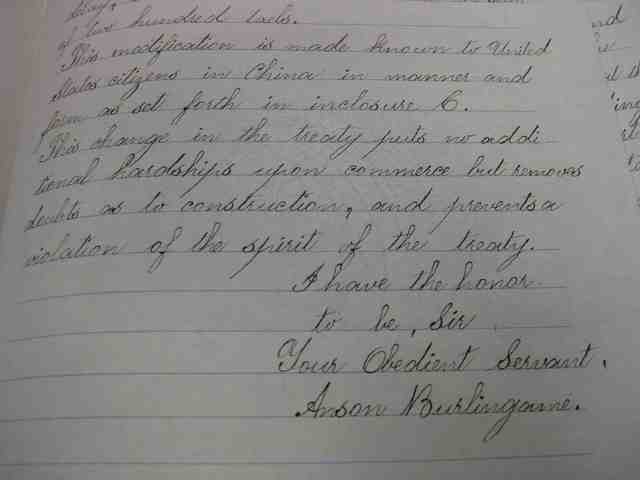 of two hundred taels.
This modification is made known to United
States citizens in China in manner and
form as set forth in inclosure 6.
This change in the treaty puts no addi-
tional hardships upon commerce but removes
doubts as to construction, and prevents a
violation of the spirit of the treaty.
I have the honor
to be, Sir
Your Obedient Servant.
Anson Burlingame.